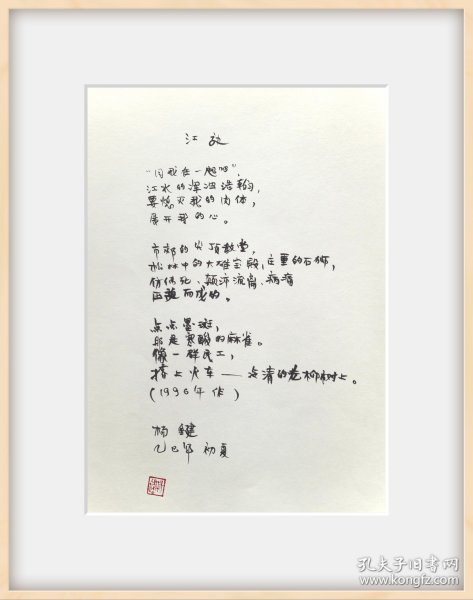 “同我在一起吧”，
江水的浑浊浩翰，
要熄灭我的肉体，
展开我的心。
市郊的尖顶教堂，
松林中的大雄宝殿，庄重的石狮，
仿佛死、颠沛流离、病痛
而成的。
点点墨斑，
却是寒酸的麻雀。
像一群民工，
搭上火车——冷清的老柳树上。
(1996年作)
杨键
乙巳年 初夏
孔夫子旧书网
www.kongfz.com